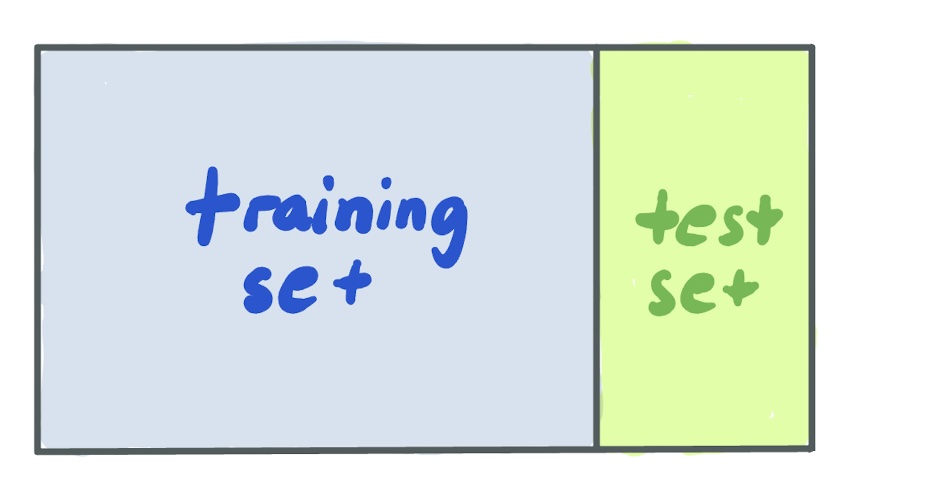 training
set
test
set